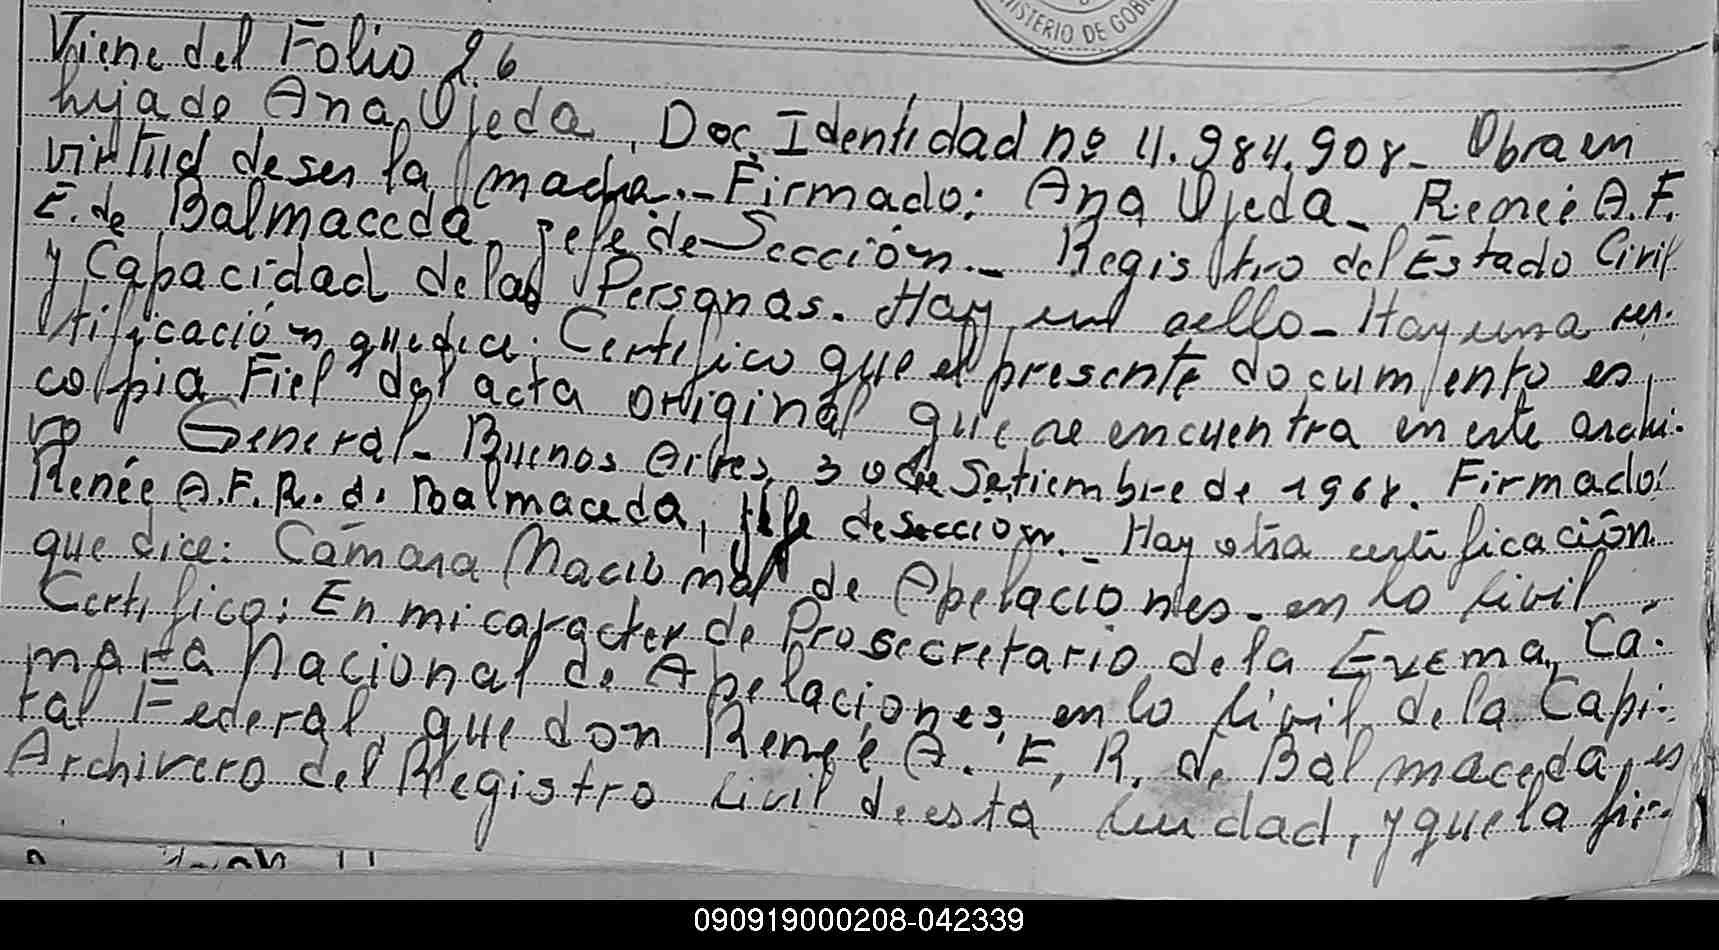 MINISTERIO DE GOBI
Viene del Folio 26
hija de Ana Ojeda, Doc. Identidad nº 11.984.908- Obra en
virtud de ser la madre.- Firmado: Ana Ojeda- Reneé A. F.
E. de Balmaceda, jefe de Sección.- Registro del Estado Civil
y Capacidad de las Personas. Hay un sello- Hay una cer-
tificación que dice: Certifico que el presente documento es
copia Fiel del acta original que se encuentra en este archi-
vo General- Buenos Aires, 30 de Setiembre de 1968. Firmado:
Renée A. F. R. de Balmaceda, jefe de sección.- Hay otra certificación
que dice: Cámara Nacional de Apelaciones en lo Civil,
Certifico: En mi caracter de Prosecretario de la Exema, Cá-
mara Nacional de Apelaciones en lo Civil de la Capi-
tal Federal, que don Reneé A. F. R. de Balmaceda, es
Archivero del Registro Civil de esta Ciudad, y que la fir-
090919000208-042339